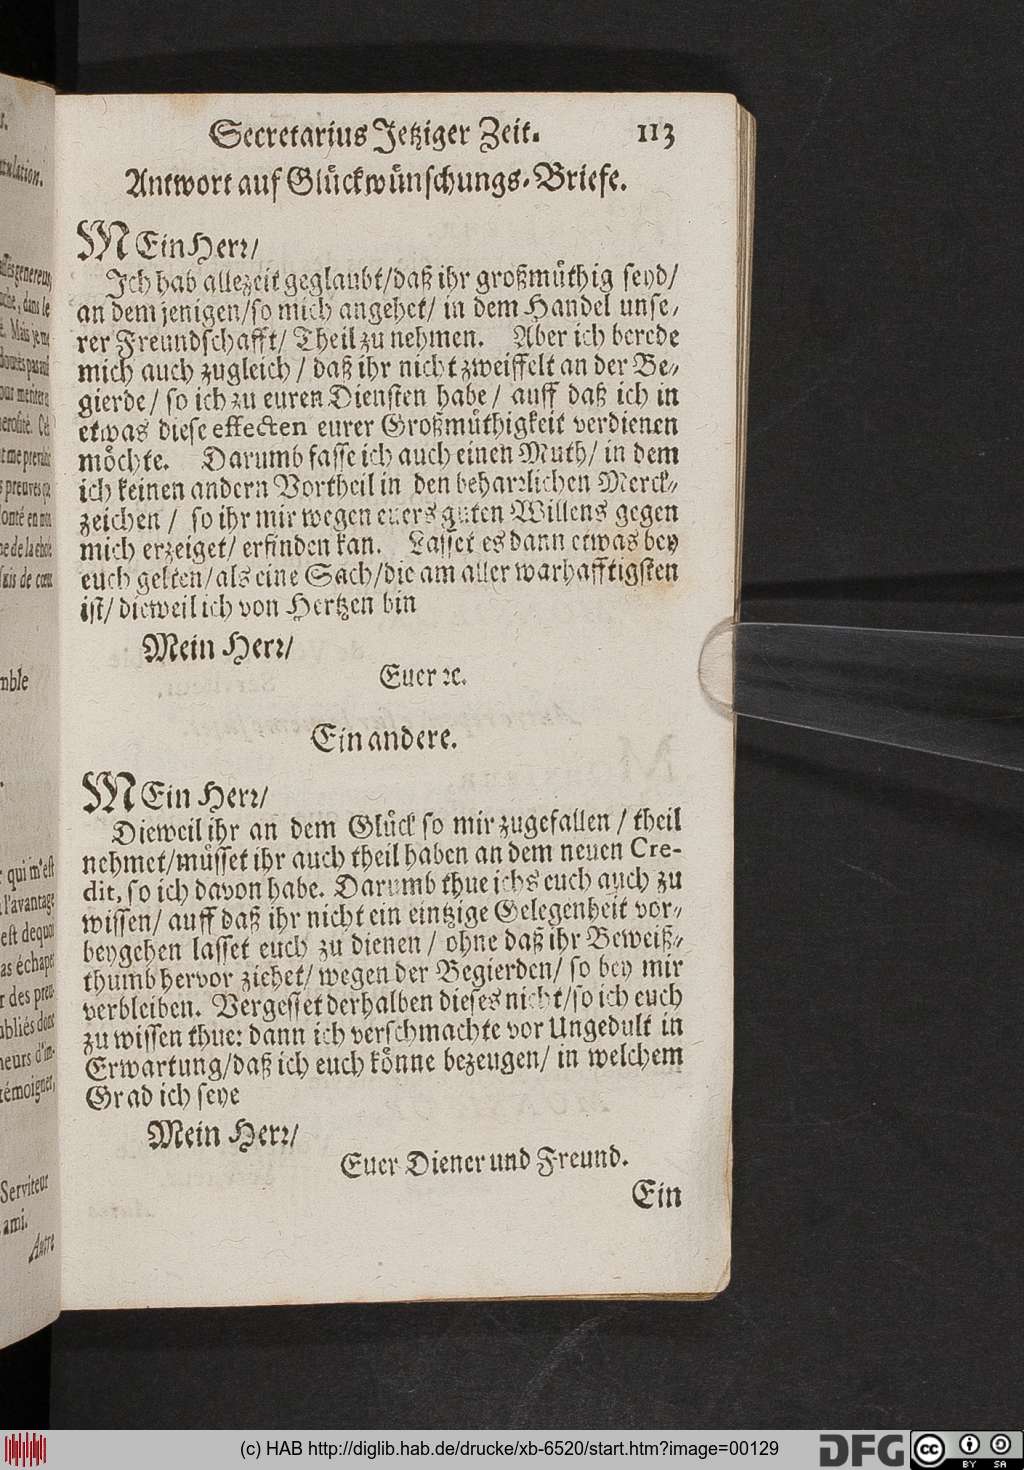 Secretarius Jetziger Zeit. 113
Antwort auf Glückwünschungs-Briefe.
MEin Herr/
Ich hab allezeit geglaubt/daß ihr großmüthig seyd/
an dem jenigen/so mich angehet/ in dem Handel unse-
rer Freundschafft/ Theil zu nehmen. Aber ich berede
mich auch zugleich / daß ihr nicht zweiffelt an der Be-
gierde/ so ich zu euren Diensten habe/ auff daß ich in
etwas diese effecten eurer Großmüthigkeit verdienen
möchte. Darumb fasse ich auch einen Muth/ in dem
ich keinen andern Vortheil in den beharrlichen Merck-
zeichen / so ihr mir wegen euers guten Willens gegen
mich erzeiget/ erfinden kan. Lasset es dann etwas bey
euch gelten/als eine Sach/die am aller warhafftigsten
ist/ dieweil ich von Hertzen bin
Mein Herr/
Euer ꝛc.
Ein andere.
MEin Herr/
Dieweil ihr an dem Glück so mir zugefallen / theil
nehmet/müsset ihr auch theil haben an dem neuen Cre-
dit, so ich davon habe. Darumb thue ichs euch auch zu
wissen/ auff daß ihr nicht ein eintzige Gelegenheit vor-
beygehen lasset euch zu dienen / ohne daß ihr Beweiß-
thumb hervor ziehet/ wegen der Begierden/ so bey mir
verbleiben. Vergesset derhalben dieses nicht/so ich euch
zu wissen thue: dann ich verschmachte vor Ungedult in
Erwartung/daß ich euch könne bezeugen/ in welchem
Grad ich seye
Mein Herr/
Euer Diener und Freund.
Ein
mble
qui m'est
l'avantage
est dequoi
as échaper
Serviteur
ami.
Autre
(c) HAB http://diglib.hab.de/drucke/xb-6520/start.htm?image=00129
DFG
cc
BY SA